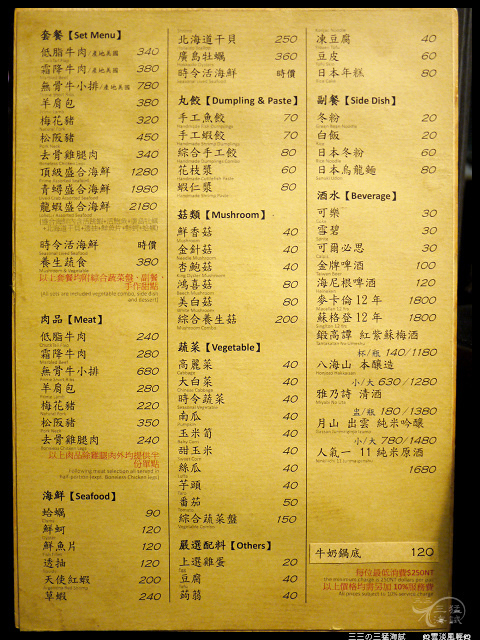 套餐【Set Menu】
低脂牛肉/產地美國 340
霜降牛肉/產地美國 380
無骨牛小排/產地美國 780
羊肩包 380
梅花豬 320
松阪豬 450
去骨雞腿肉 340
頂級盛合海鮮 1280
青蟳盛合海鮮 1980
龍蝦盛合海鮮 2180
時令活海鮮 時價
養生蔬食 380
以上套餐均附綜合蔬菜盤、副餐、
手作甜點
(All sets are included vegetable combo, side dish
and dessert)
肉品【Meat】
低脂牛肉 240
霜降牛肉 280
無骨牛小排 680
羊肩包 280
梅花豬 220
松阪豬 350
去骨雞腿肉 240
以上肉品除雞腿肉外均提供半
份單點
Following meat selection all served in
half portion (exp. Boneless Chicken legs)
海鮮【Seafood】
蛤蠣 90
鮮蚵 120
鮮魚片 120
透抽 120
天使紅蝦 200
草蝦 240
北海道干貝 250
廣島牡蠣 360
時令活海鮮 時價
丸餃【Dumpling & Paste】
手工魚餃 70
手工蝦餃 70
綜合手工餃 80
花枝漿 60
蝦仁漿 80
菇類【Mushroom】
鮮香菇 40
金針菇 40
杏鮑菇 40
鴻喜菇 80
美白菇 80
綜合養生菇 200
蔬菜【Vegetable】
高麗菜 40
大白菜 40
時令蔬菜 40
南瓜 40
玉米筍 40
甜玉米 40
絲瓜 40
芋頭 40
番茄 50
綜合蔬菜盤 150
嚴選配料【Others】
上選雞蛋 20
豆腐 40
蒟蒻 40
凍豆腐 40
豆皮 60
日本年糕 80
副餐【Side Dish】
冬粉 20
白飯 20
日本冬粉 60
日本烏龍麵 80
酒水【Beverage】
可樂 30
雪碧 30
可爾必思 30
金牌啤酒 100
海尼根啤酒 120
麥卡倫 12 年 1800
蘇格登 12 年 1800
鍛高譚 紅紫蘇梅酒
杯/瓶 140/1180
八海山 本釀造
小/大 630/1280
雅乃詩 清酒
盅/瓶 180/1380
月山 出雲 純米吟釀
小/大 780/1480
人氣一 11 純米原酒
1680
牛奶鍋底 120
每位最低消費$250NT
the minimum charge is 250NT dollars per person
以上價格均需另加 10%服務費
All prices subject to 10% service charge
三三の三猛海賊